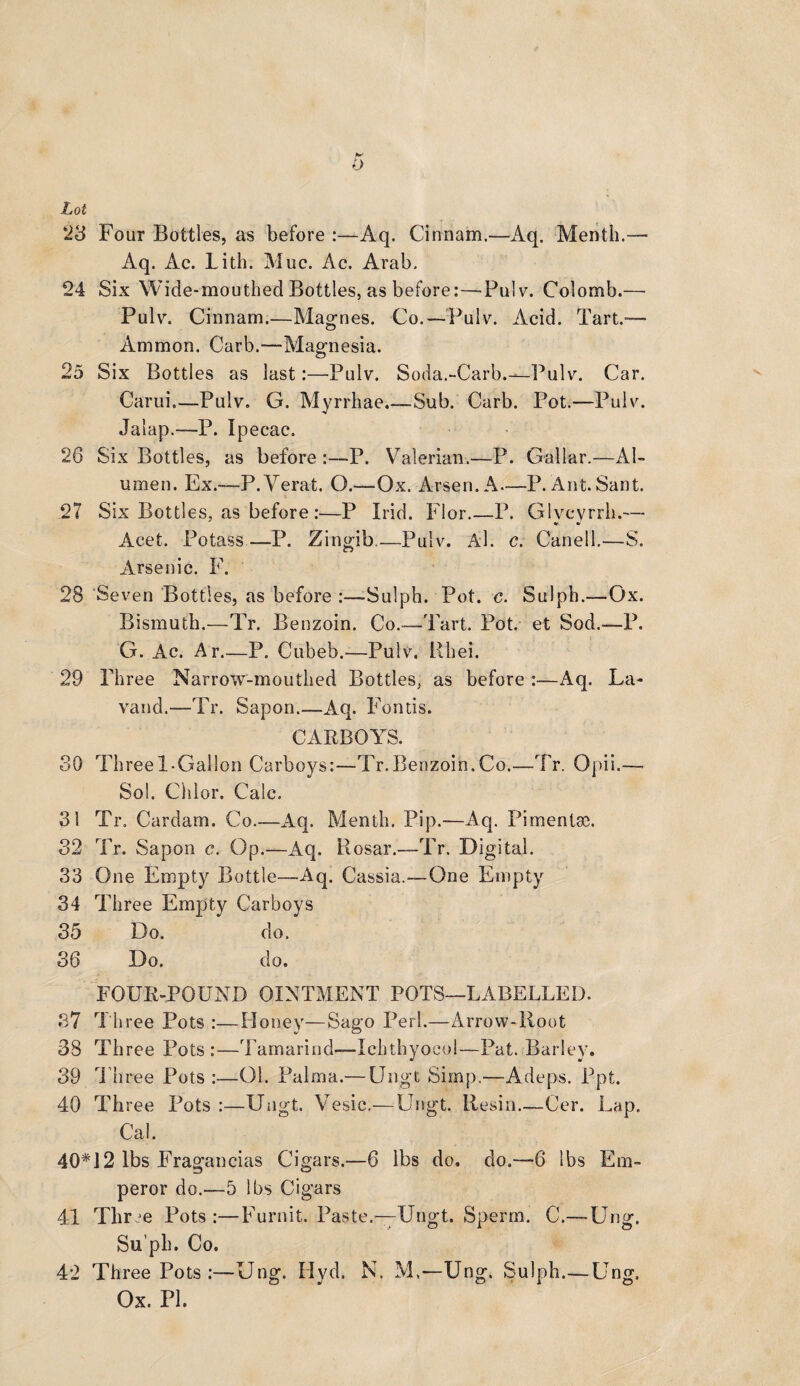 5
Lot
23 Four Bottles, as before :—Aq. Cinnam.—Aq. Menth.—
Aq. Ac. Lith. Muc. Ac. Arab.
24 Six Wide-mouthed Bottles, as before:—Pulv. Colomb.—
Pulv. Cinnam.—Magnes. Co.—Pulv. Acid. Tart.—
Ammon. Carb.—Magnesia.
25 Six Bottles as last:—Pulv. Soda.-Carb.—Pulv. Car.
Carui.—Pulv. G. Myrrhae.—Sub. Carb. Pot.—Pulv.
Jalap.—P. Ipecac.
26 Six Bottles, as before:—P. Valerian.—P. Gallar.—Al-
umen. Ex.—P. Verat. O.—Ox. Arsen. A.—P. Ant. Sant.
27 Six Bottles, as before:—P Irid. Flor.—P. Glycyrrh.—
Acet. Potass—P. Zingib.—Pulv. Al. c. Canell.—S.
Arsenic. F.
28 Seven Bottles, as before :—Sulph. Pot. c. Sulph.—Ox.
Bismuth.—Tr. Benzoin. Co.—Tart. Pot. et Sod.—P.
G. Ac. Ar.—P. Cubeb.—Pulv. Rhei.
29 Three Narrow-mouthed Bottles, as before :—Aq. La-
vand.—Tr. Sapon.—Aq. Fontis.
CARBOYS.
30 Three 1-Gallon Carboys:—Tr. Benzoin. Co.—Tr. Opii.—
Sol. Chlor. Calc.
31 Tr. Cardam. Co.—Aq. Menth. Pip.—Aq. Pimentæ.
32 Tr. Sapon c. Op.—Aq. Rosar.—Tr. Digital.
33 One Empty Bottle—Aq. Cassia.—One Empty
34 Three Empty Carboys
35 Do. do.
36 Do. do.
FOUR-POUND OINTMENT POTS—LABELLED.
37 Three Pots :—Honey—Sago Perl.—Arrow-Root
38 Three Pots:—Tamarind—Ichthyocol—Pat. Barley.
39 Three Pots :—Ol. Palma.—Ungt Simp.—Adeps. Ppt.
40 Three Pots :—Ungt. Vesic.—Ungt. Resin.—Cer. Lap.
Cal.
40*12 lbs Fragancias Cigars.—6 lbs do. do.—6 lbs Em-
peror do.—5 lbs Cigars
41 Three Pots:—Furnit. Paste.—Ungt. Sperm. C.—Ung.
Sulph. Co.
42 Three Pots :—Ung. Hyd. N. M.—Ung. Sulph.—Ung.
Ox. Pl.